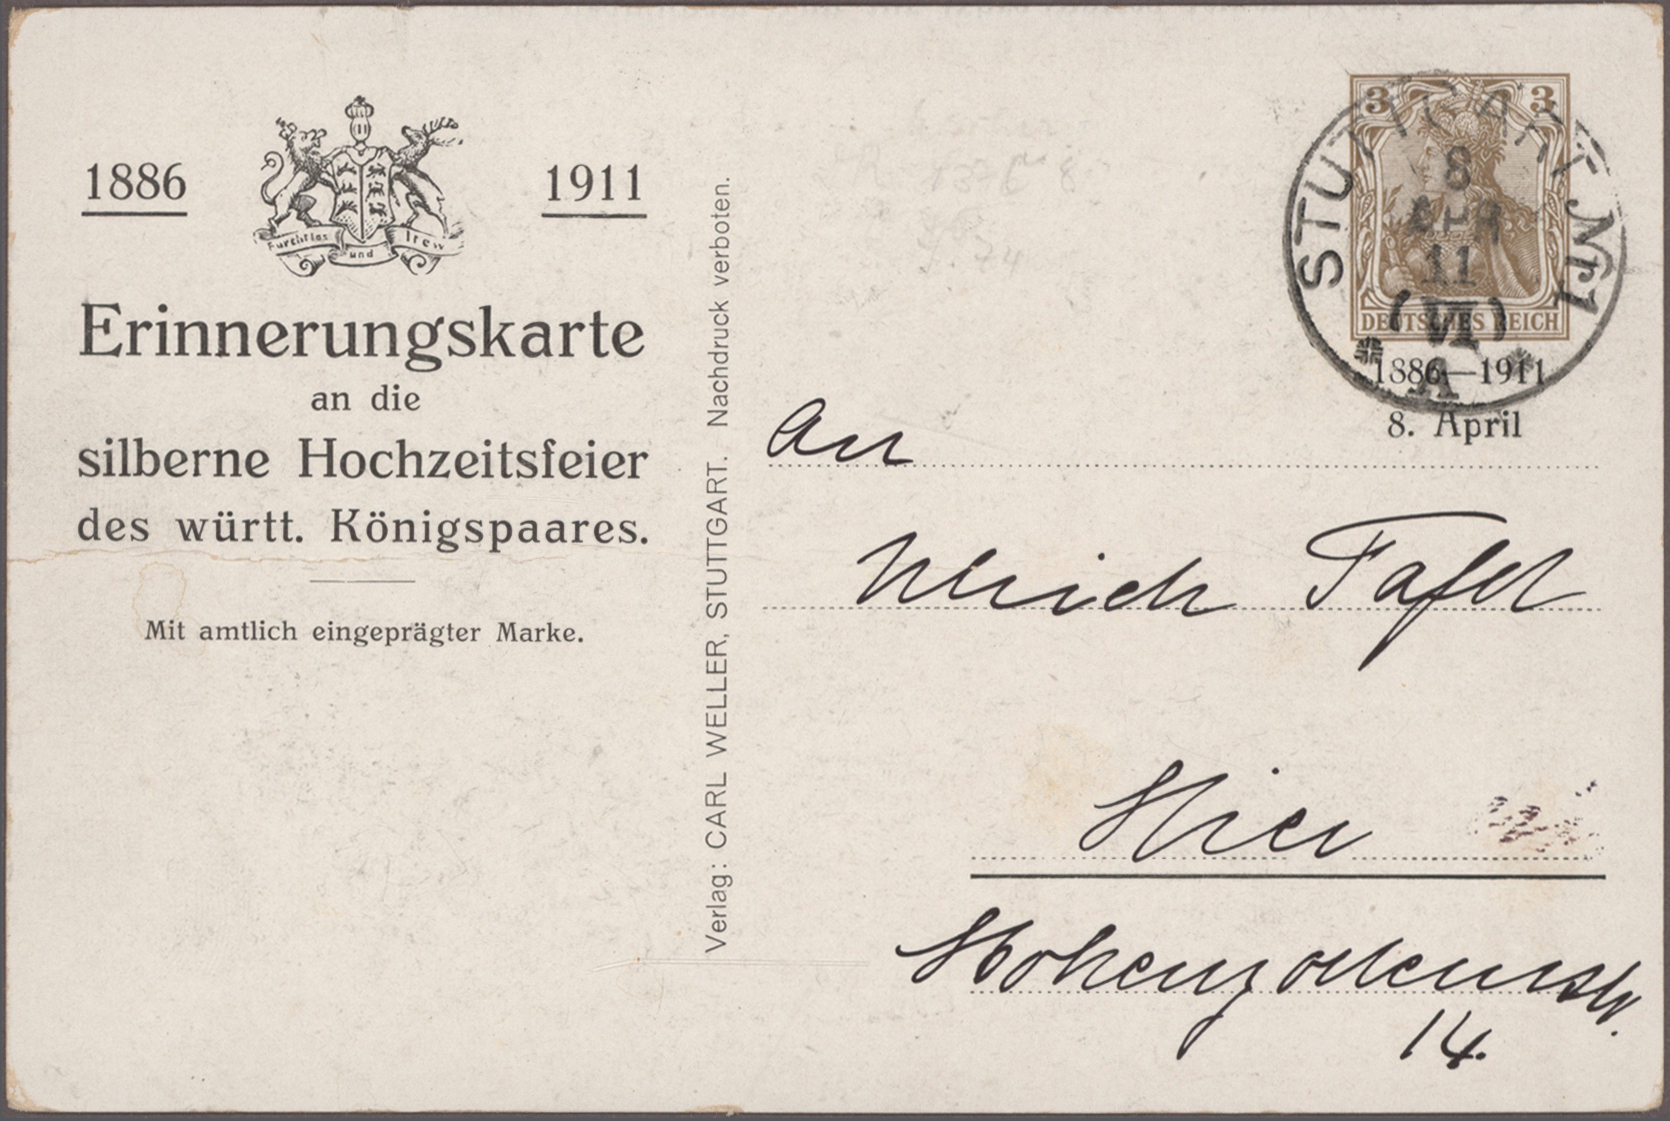 1886
1911
Furchtlos und Trew
Erinnerungskarte
an die
silberne Hochzeitsfeier
des württ. Königspaares.
Mit amtlich eingeprägter Marke.
Verlag: CARL WELLER, STUTTGART. Nachdruck verboten.
3 3
DEUTSCHES REICH
STUTTGART Nr1
8
APR
11
(VI)
A
1886—1911
8. April
An
Ulrich Tafel
Hier
Hohenzollernstr.
14.